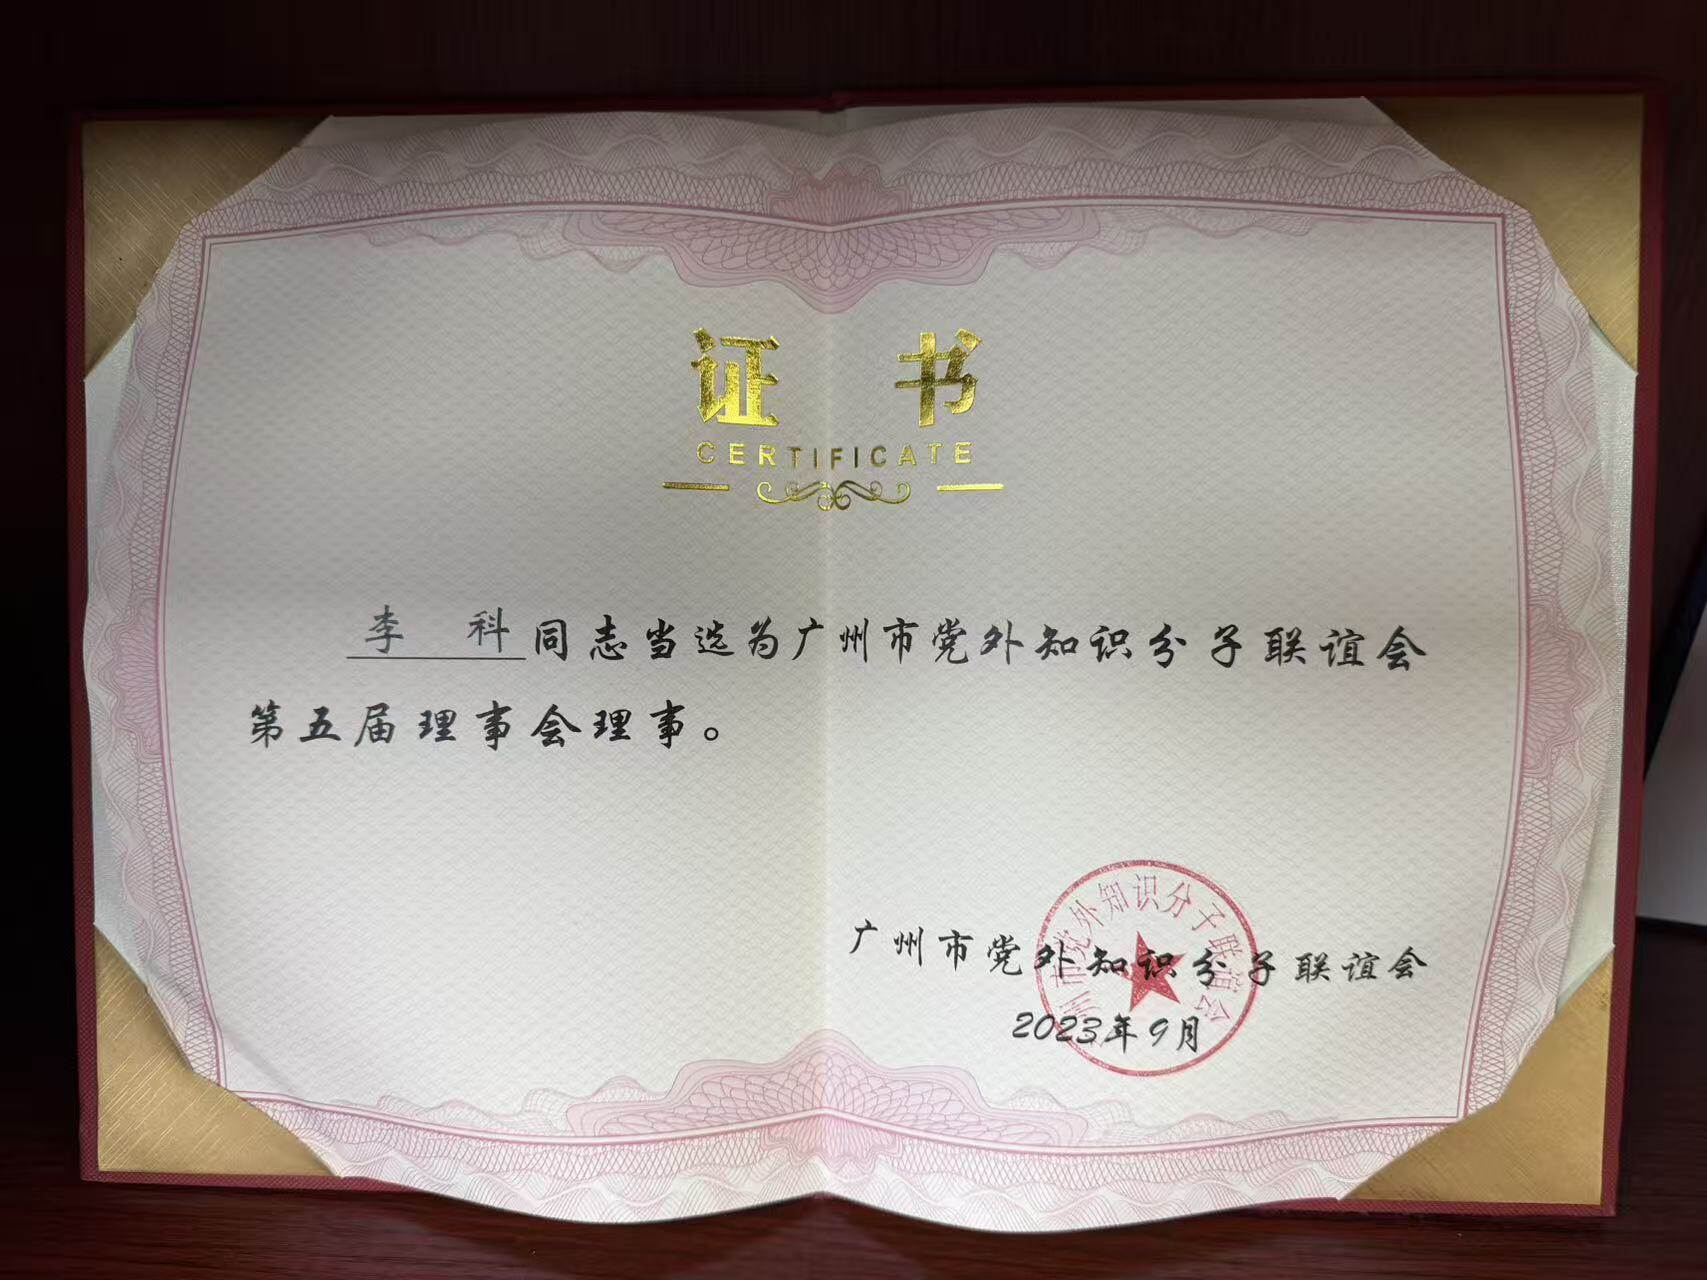 证 书
CERTIFICATE
李 科同志当选为广州市党外知识分子联谊会
第五届理事会理事。
广州市党外知识分子联谊会
2023年9月
州市党外知识分子联谊会